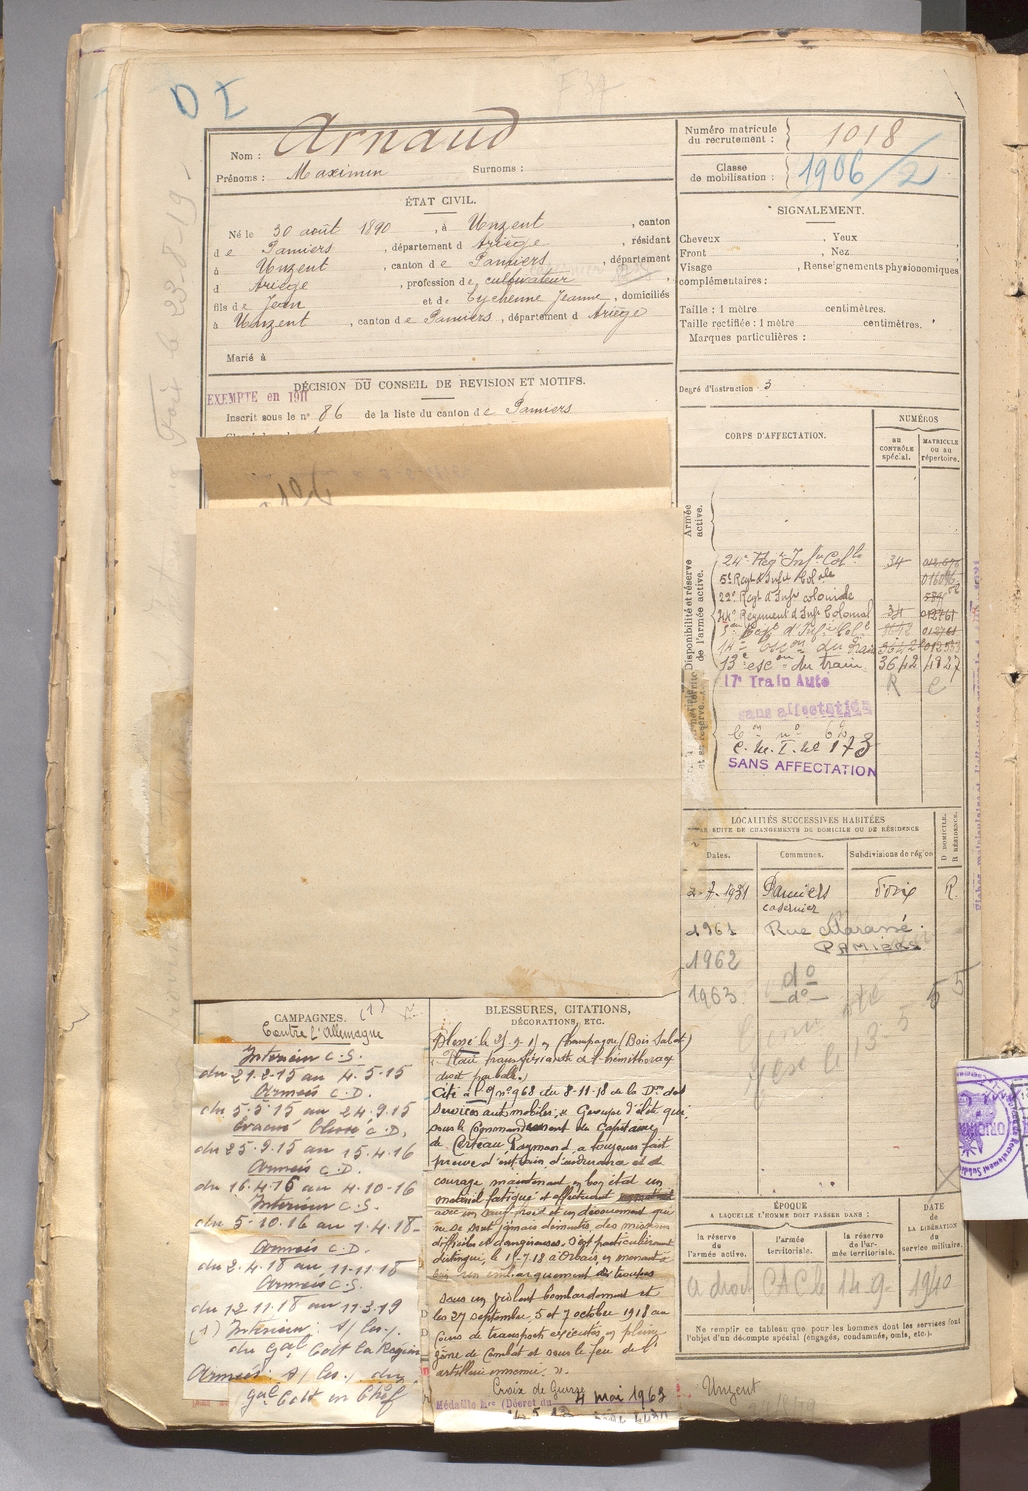 D I
Arnaud
Nom :
Prénoms : Maximin Surnoms :
Numéro matricule
du recrutement : 1018
Classe
de mobilisation : 1906/2
ÉTAT CIVIL.
Né le 30 août 1890, à Unzent, canton
de Pamiers, département d Ariège, résidant
à Unzent, canton de Pamiers, département
d Ariège, profession de cultivateur,
fils de Jean et de Eychenne Jeanne, domiciliés
à Unzent, canton de Pamiers, département d Ariège
Marié à
SIGNALEMENT.
Cheveux , Yeux ,
Front , Nez
Visage , Renseignements physionomiques
complémentaires :
Taille : 1 mètre centimètres.
Taille rectifiée : 1 mètre centimètres.
Marques particulières :
Degré d'instruction : 3
DÉCISION DU CONSEIL DE REVISION ET MOTIFS.
EXEMPTE en 1911
Inscrit sous le n° 86 de la liste du canton de Pamiers
CORPS D'AFFECTATION.
NUMÉROS
au contrôle spécial.
matricule ou au répertoire.
Armée active.
Disponibilité et réserve de l'armée active.
24e Regt Infie Colle 34
5e Regt d'Infie Colale
22e Regt d'Infie coloniale
44e Régiment d'Infie Colonial 34 012761
5me Regt d'Infie Cole 3642 012761
14e Escon du Train
13e escon du train 3642 4827
17e Train Auto R C
sans affectation
Con n° 62
C. M. I. N° 173
SANS AFFECTATION
LOCALITÉS SUCCESSIVES HABITÉES
PAR SUITE DE CHANGEMENTS DE DOMICILE OU DE RÉSIDENCE
D DOMICILE.
R RÉSIDENCE.
Dates. Communes. Subdivisions de région
2-7-1931 Pamiers Foix R.
casernier
1961 Rue Marassé
PAMIERS
1962 do
1963 do
CAMPAGNES. (1)
Contre l'Allemagne
Intérieur C.S.
du 21.2.15 au 4.5.15
Armées C.D.
du 5.5.15 au 24.9.15
Evacué blessé C.D.
du 25.9.15 au 15.4.16
Armées C.D.
du 16.4.16 au 4.10.16
Intérieur C.S.
du 5.10.16 au 1.4.18
Armées C.D.
du 2.4.18 au 11.11.18
Armées C.S.
du 12.11.18 au 11.3.19
(1) Intérieur : s/ les /.
du Gal Cott la Région
Armées : s/ les /. du
gal Cott en Chef
BLESSURES, CITATIONS,
DÉCORATIONS, ETC.
Blessé le 25.9.15 en Champagne (Bois Sabot)
(Plaie transfixiante de l'hémithorax
droit par balle.)
Cité à l'O n° 968 du 8-11-18 de la Don des
Services automobiles, « Groupe d'élite qui
sous le Commandement du Capitaine
de Certeau Raymond, a toujours fait
preuve d'entrain d'endurance et de
courage maintenant en bon état un
matériel fatigué et effectuant
avec un sang froid et un dévouement qui
ne se sont jamais démentis, des missions
difficiles et dangereuses. S'est particulièrement
distingué, le 15-7-18 à Orbais, en menant à
bien un embarquement de troupes
sous un violent bombardement et
les 27 septembre, 5 et 7 octobre 1918 au
cours de transports exécutés en pleine
zone de Combat et sous le feu de l'
artillerie ennemie. ».
Croix de Guerre
Médaille Mre (Décret du 4 mai 1963
ÉPOQUE
A LAQUELLE L'HOMME DOIT PASSER DANS :
la réserve de l'armée active.
l'armée territoriale.
la réserve de l'armée territoriale.
DATE
de
LA LIBÉRATION
du
service militaire.
a droit CAC le 14-9- 1940
Ne remplir ce tableau que pour les hommes dont les services font
l'objet d'un décompte spécial (engagés, condamnés, omis, etc.).
Unzent